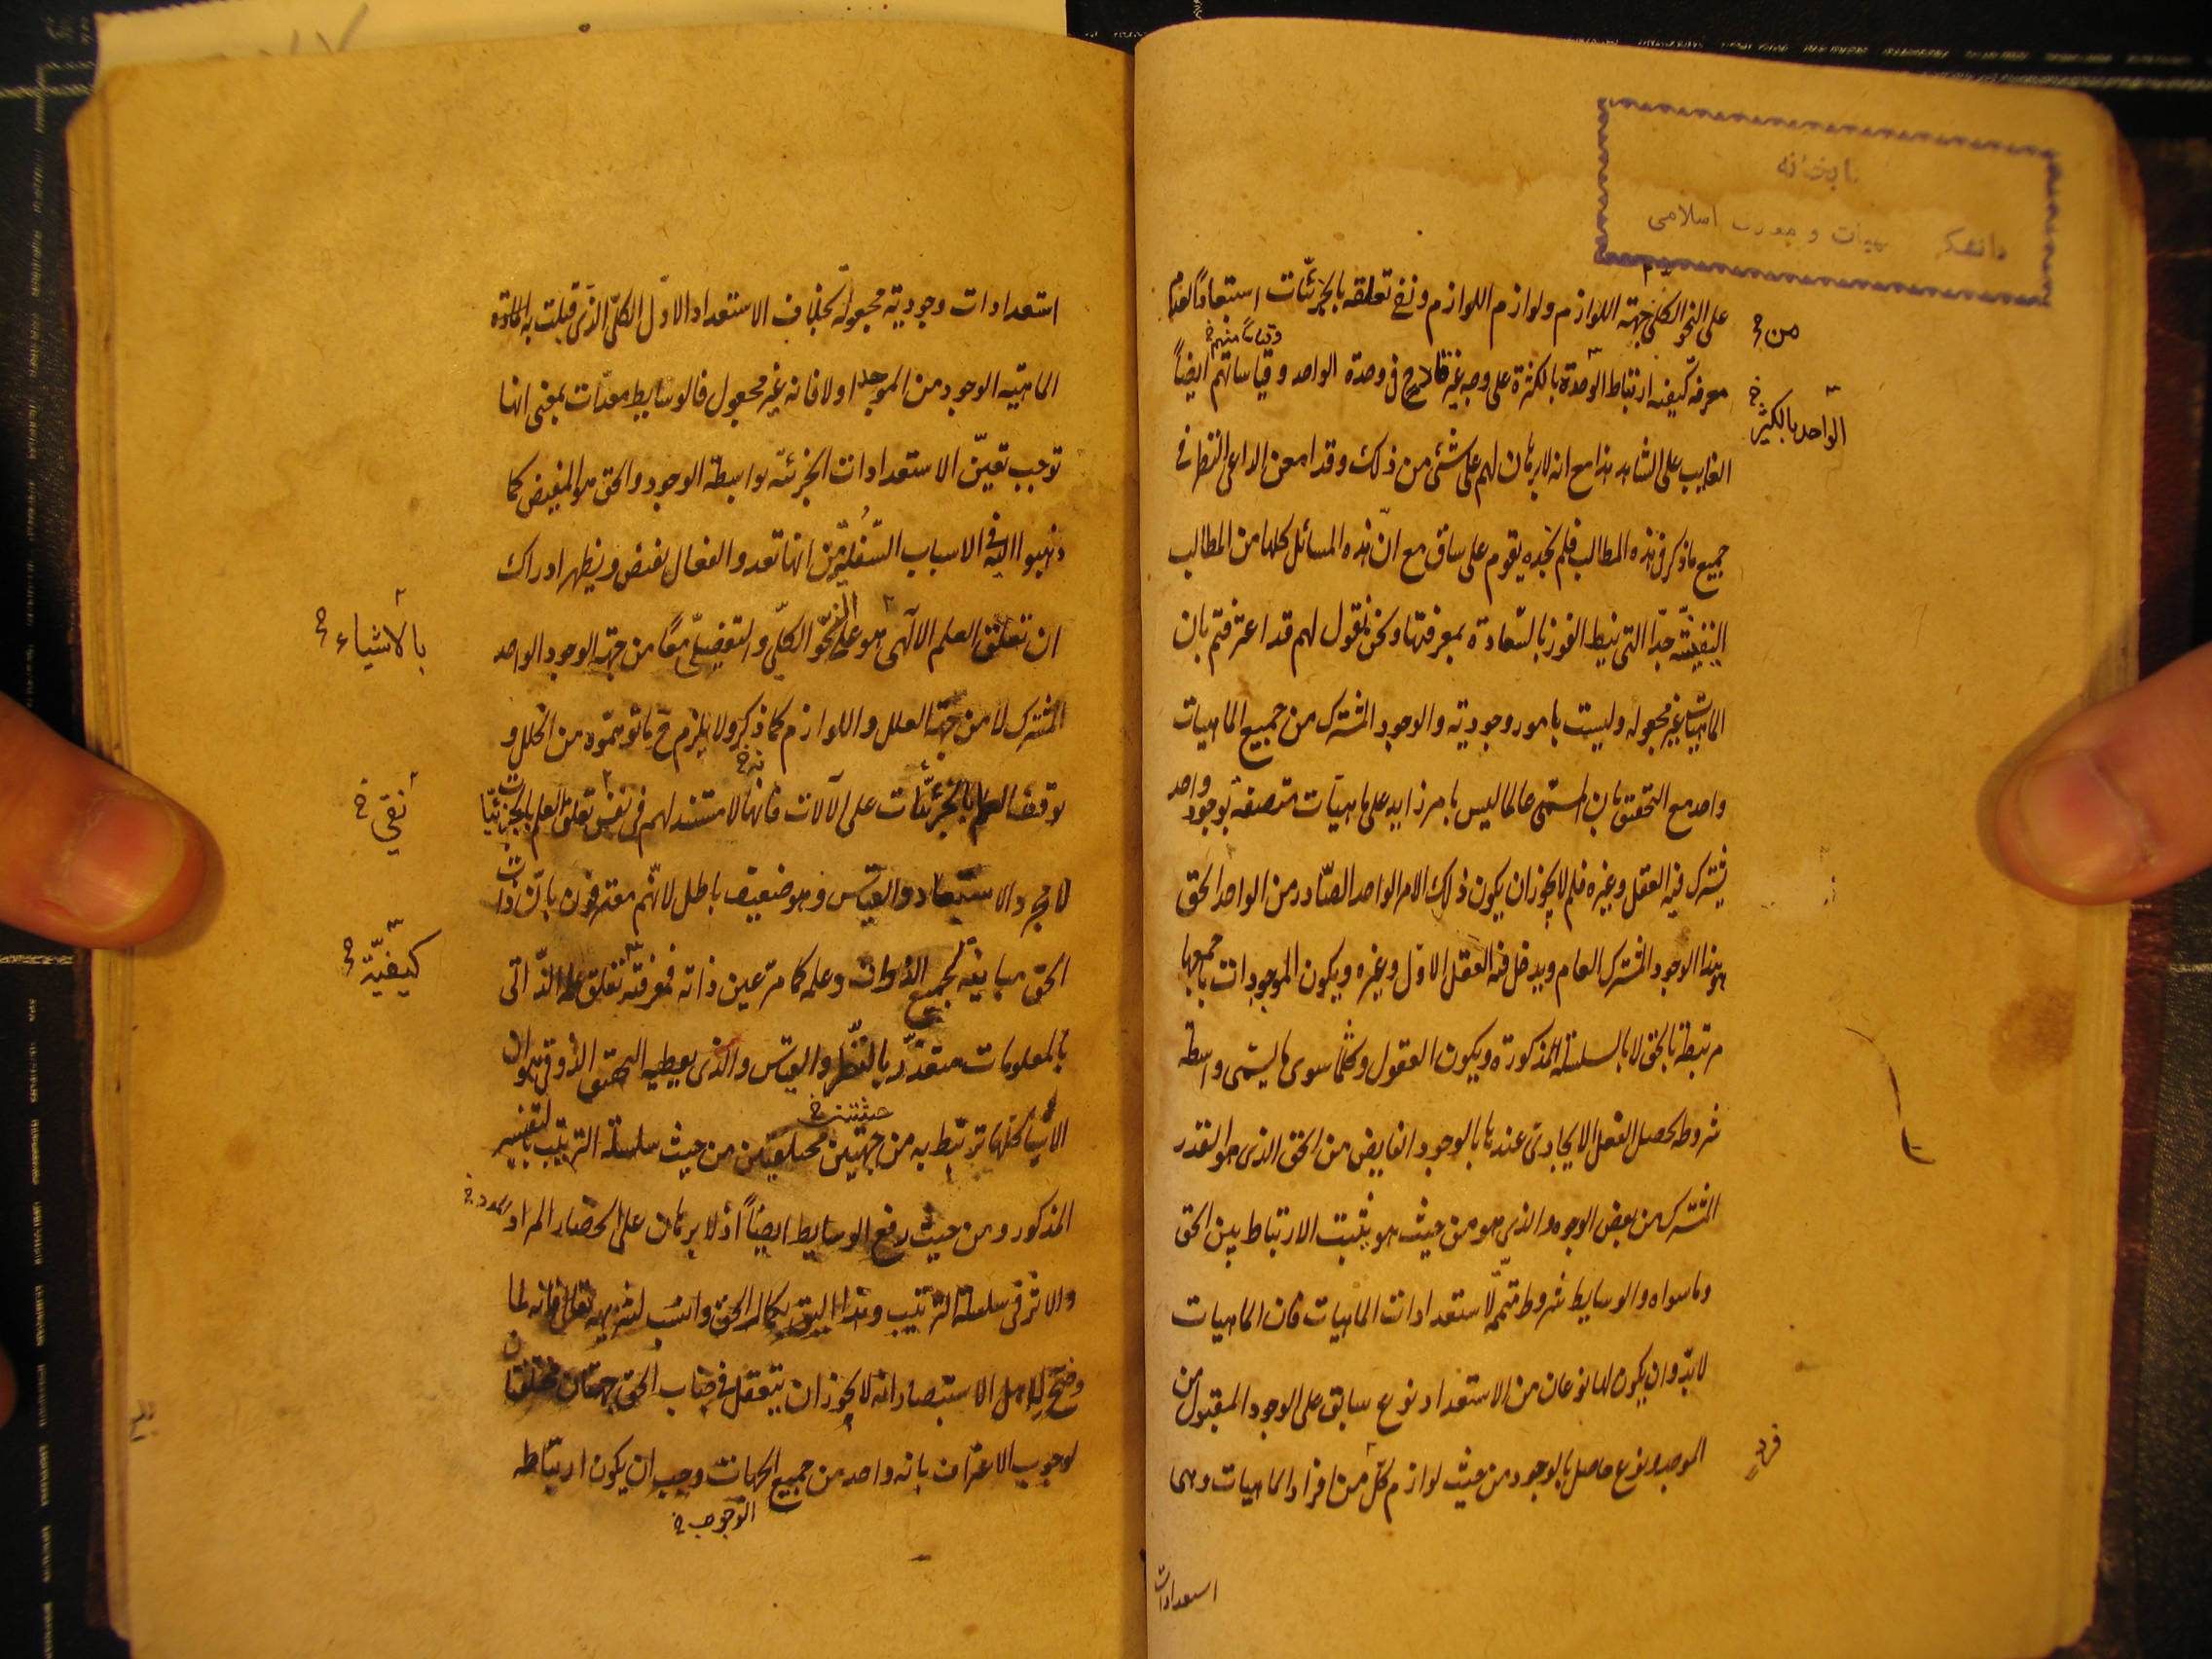 دانشکده الهیات و معارف اسلامی
على النحو الكلى جهة اللوازم ولوازم اللوازم ونفى تعلقه بالجزئيات استبعاداً لعدم
من خ
وقياساً منهم خ
معرفة كيفية ارتباط الوحدة بالكثرة على وجه غير قادح فى وحدة الواحد وقياساتهم ايضاً
الواحد بالكثير خ
الغايب على الشاهد هذا مع انه لا برهان لهم على شئ من ذلك وقد امعن الداعى النظر فى
جميع ما ذكر فى هذه المطالب فلم يجده يقوم على ساق مع انّ هذه المسائل كلها من المطالب
النفيسة جدّا التى ينيط الفوز بالسّعادة بمعرفتها ونحن نقول لهم قد اعترفتم بان
الماهيات غير مجعولة وليست بامور وجودية والوجود المشترك من جميع الماهيات
واحد مع التحقق بان المسمى عالما ليس بامر زايد على ماهيات متصفة بوجود واحد
يشترك فيه العقل وغيره فلم لا يجوز ان يكون ذلك الامر الواحد الصّادر من الواحد الحق
هو هذا الوجود المشترك العام ويدخل فيه العقل الاوّل وغيره ويكون الموجودات باجمعها
مرتبطة بالحق لا بالسلسلة المذكورة ويكون العقول وكلّما سوى ما يسمى واسطة
شروط تحصل الفعل الايجادى عندها بالوجود الفايض من الحق الذى هو القدر
المشترك من بعض الوجوه والذى هو من حيث هو يثبت الارتباط بين الحق
وما سواه والوسايط شروط متمّمة لاستعدادات الماهيات فان الماهيات
لا بدّ وان يكون لها نوعان من الاستعداد نوع سابق على الوجود المقبول من
الموجد ونوع حاصل بالوجود من حيث لوازم كلّ من افراد الماهيات وهى
فردٍ
استعدادات
استعدادات وجودية مجعولة بخلاف الاستعداد الاوّل الكلّى الذى قبلت به المادة
الماهية الوجود من الموجد اولا فانه غير مجعول فالوسايط معدّات بمعنى انها
توجب تعيّن الاستعدادات الجزئيّة بواسطة الوجود والحق هو المفيض كما
ذهبوا اليه فى الاسباب السّفليّة من انها تعد والفعال يفيض ويظهر ادراك
ان تعلق العلم الالهى هو على النحو الكلّى والتفصيلى معًا من جهة الوجود الواحد
بالاشياء خ
المشترك لا من جهة العلل واللوازم كما ذكر ولا يلزم ح ما توهّموه من الخلل و
توقف العلم بالجزئيّات على الآلات فانها لا مستند لهم فى نفس تعلق العلم بالجزئيّات
نفى خ
لا مجرد الاستبعاد والقياس وهو ضعيف باطل لانّهم معترفون بانّ ذات
الحق مباينة لجميع الذوات وعلمه كما مرّ عين ذاته فمعرفته تعلق علمه الذّاتى
كيفيّة خ
بالمعلومات متعذّر بالنّظر والقياس والذى يعطيه التحقيق الذوقى هو ان
الاشياء كلها ترتبط به من جهتين مختلفتين من حيث سلسلة الترتيب بالتفسير
حيثيتين خ
المذكور ومن حيث رفع الوسايط ايضاً اذ لا برهان على انحصار المراد
والاثر فى سلسلة الترتيب وهذا اليق بكمال الحق وانسب لتنزيهه تعالى فانه لما
وضح لاهل الاستبصار انه لا يجوز ان يتعقل فى جناب الحق جهتان مختلفتان
لوجوب الاعتراف بانه واحد من جميع الجهات وجب ان يكون ارتباطه
الوجود خ